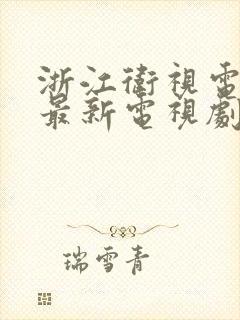 浙江衛視電
最新電視劇
瑞雪青